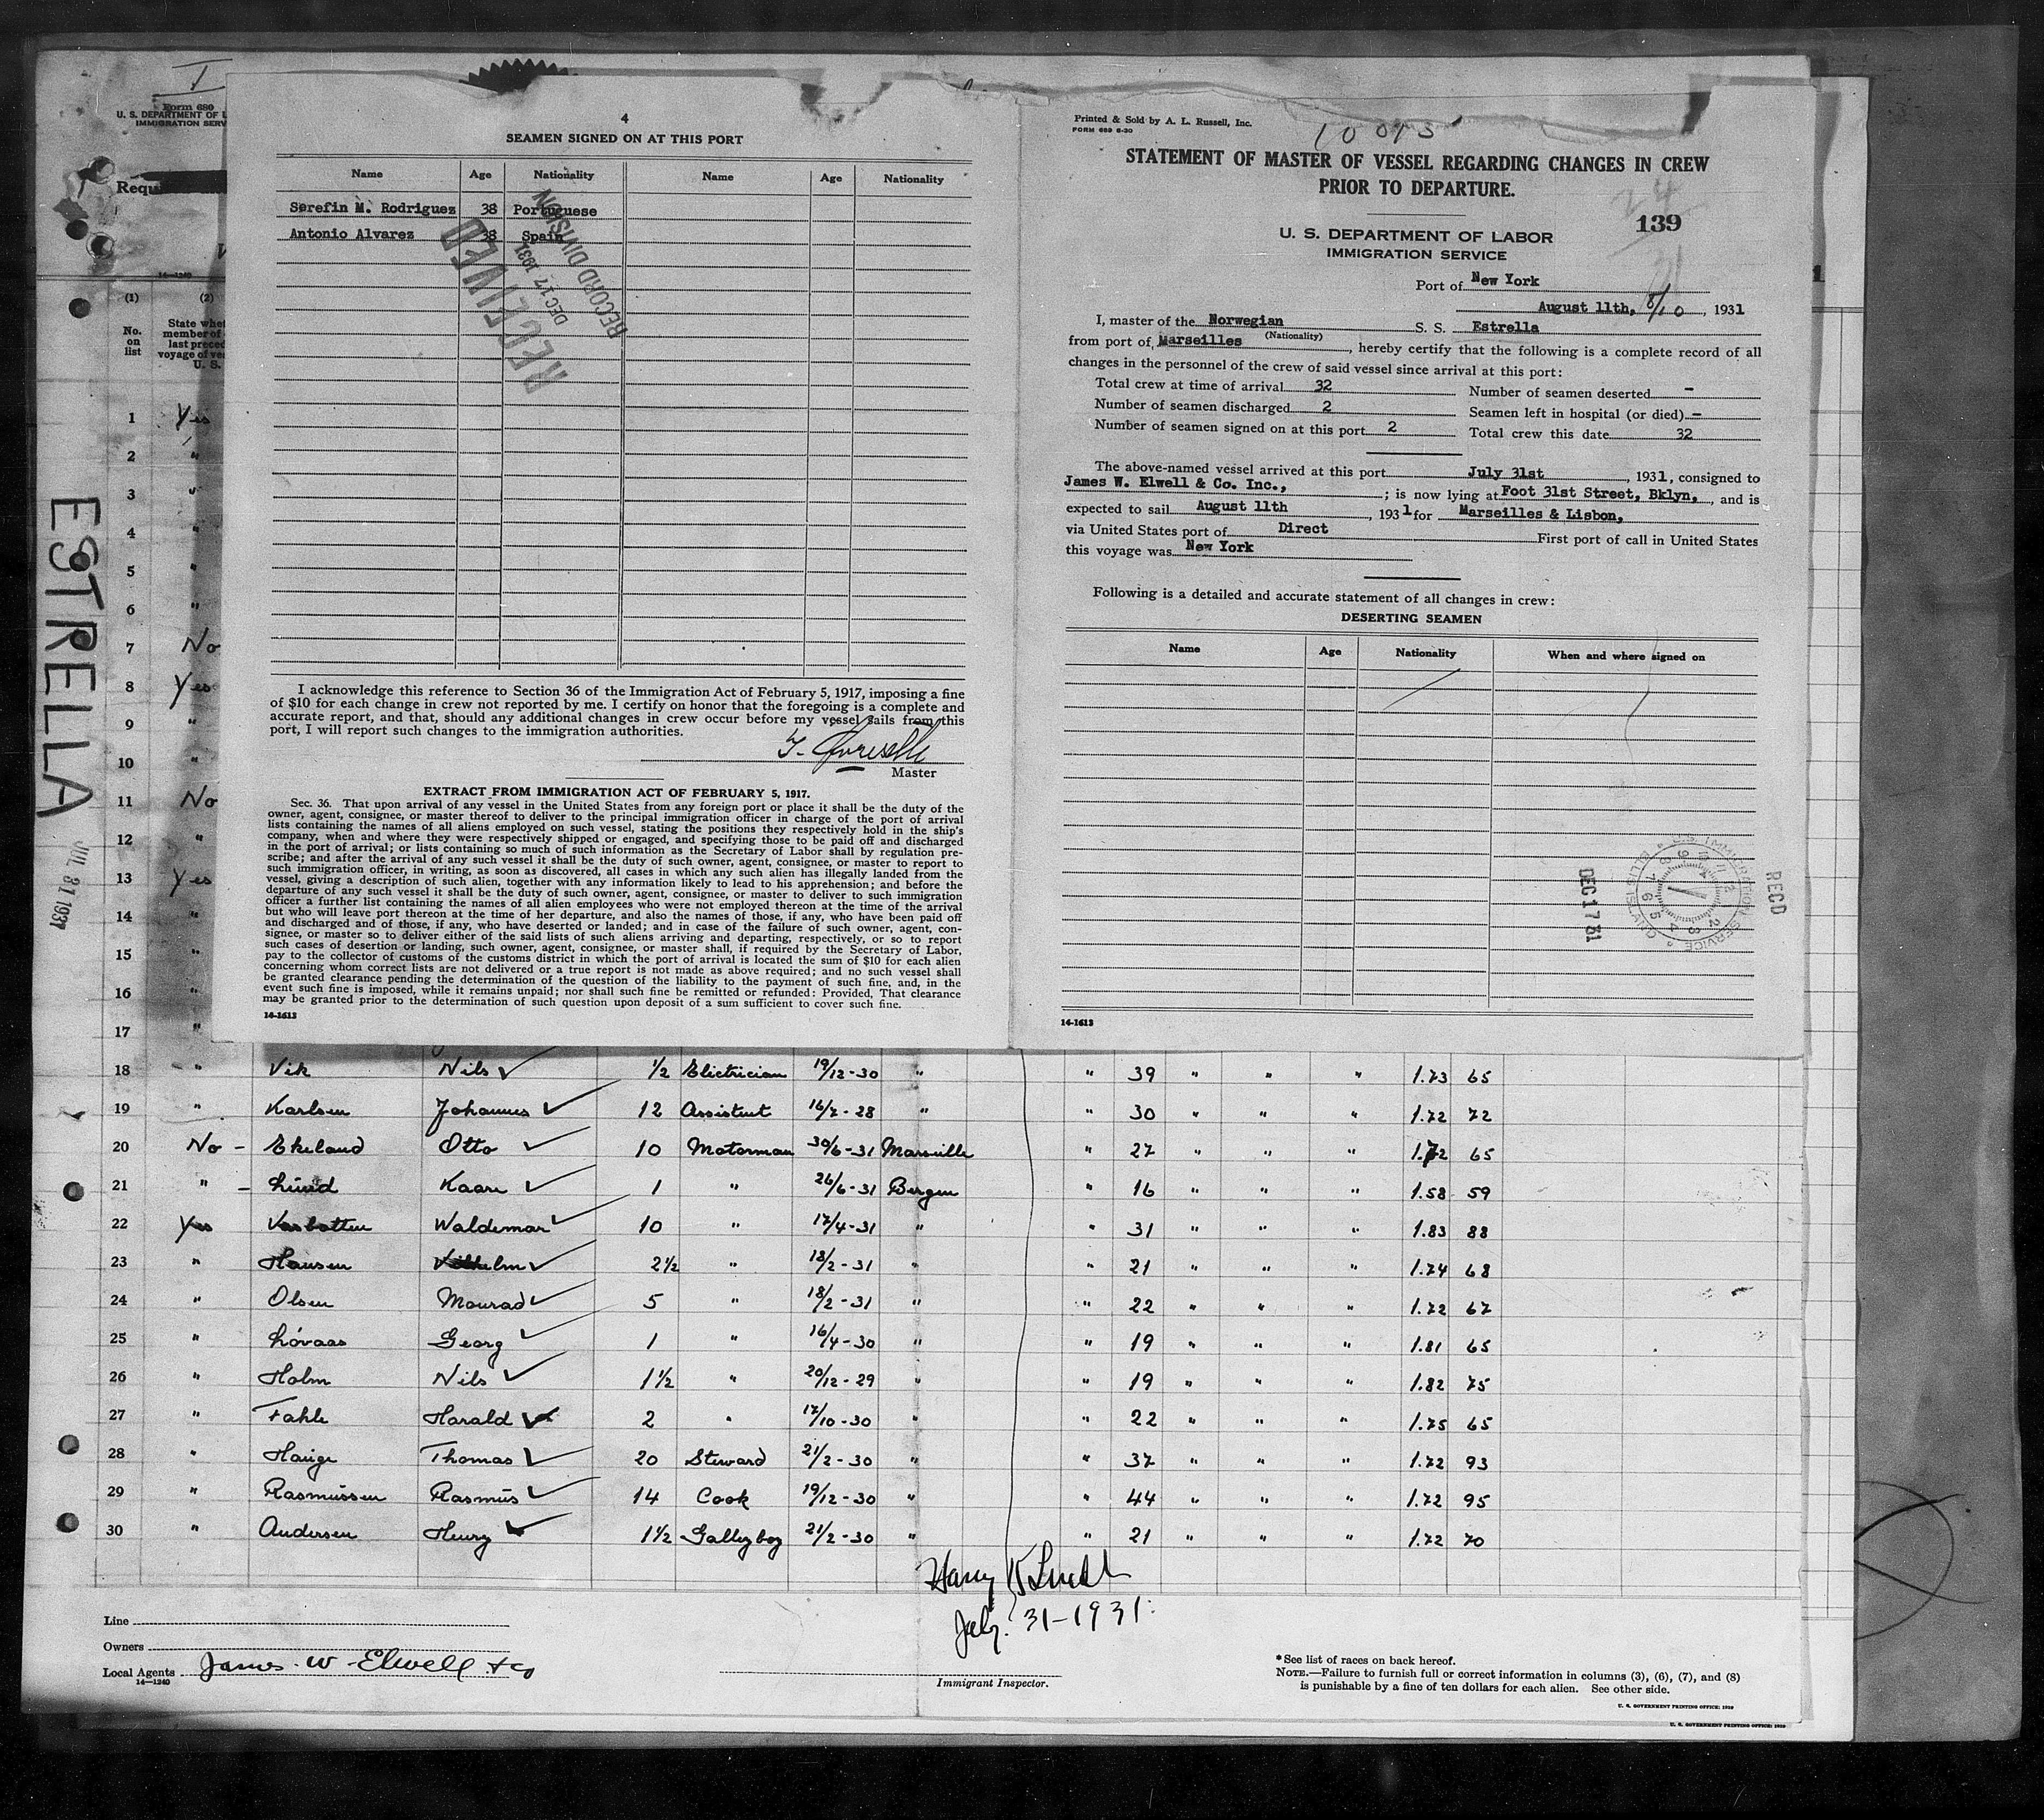 I
Form 680
U. S. DEPARTMENT OF L
IMMIGRATION SERV
Requ
14—1240
(1) (2)
No. on list
State whe
member of
last preced
voyage of ve
U. S.
1 Yes
2 "
3 "
4 "
5 "
6 "
7 No
8 Yes
9 "
10 "
11 No
12 "
13 Yes
14 "
15 "
16 "
17 "
ESTRELLA
JUL 31 1931
4
SEAMEN SIGNED ON AT THIS PORT
Name Age Nationality Name Age Nationality
Serefin M. Rodriguez 38 Portuguese
Antonio Alvarez 38 Spain
RECEIVED
DEC 17 1931
RECORD DIVISION
I acknowledge this reference to Section 36 of the Immigration Act of February 5, 1917, imposing a fine
of $10 for each change in crew not reported by me. I certify on honor that the foregoing is a complete and
accurate report, and that, should any additional changes in crew occur before my vessel sails from this
port, I will report such changes to the immigration authorities.
Master
EXTRACT FROM IMMIGRATION ACT OF FEBRUARY 5, 1917.
Sec. 36. That upon arrival of any vessel in the United States from any foreign port or place it shall be the duty of the
owner, agent, consignee, or master thereof to deliver to the principal immigration officer in charge of the port of arrival
lists containing the names of all aliens employed on such vessel, stating the positions they respectively hold in the ship's
company, when and where they were respectively shipped or engaged, and specifying those to be paid off and discharged
in the port of arrival; or lists containing so much of such information as the Secretary of Labor shall by regulation pre-
scribe; and after the arrival of any such vessel it shall be the duty of such owner, agent, consignee, or master to report to
such immigration officer, in writing, as soon as discovered, all cases in which any such alien has illegally landed from the
vessel, giving a description of such alien, together with any information likely to lead to his apprehension; and before the
departure of any such vessel it shall be the duty of such owner, agent, consignee, or master to deliver to such immigration
officer a further list containing the names of all alien employees who were not employed thereon at the time of the arrival
but who will leave port thereon at the time of her departure, and also the names of those, if any, who have been paid off
and discharged and of those, if any, who have deserted or landed; and in case of the failure of such owner, agent, con-
signee, or master so to deliver either of the said lists of such aliens arriving and departing, respectively, or so to report
such cases of desertion or landing, such owner, agent, consignee, or master shall, if required by the Secretary of Labor,
pay to the collector of customs of the customs district in which the port of arrival is located the sum of $10 for each alien
concerning whom correct lists are not delivered or a true report is not made as above required; and no such vessel shall
be granted clearance pending the determination of the question of the liability to the payment of such fine, and, in the
event such fine is imposed, while it remains unpaid; nor shall such fine be remitted or refunded: Provided, That clearance
may be granted prior to the determination of such question upon deposit of a sum sufficient to cover such fine.
14-1613
Printed & Sold by A. L. Russell, Inc.
FORM 689 6-30
STATEMENT OF MASTER OF VESSEL REGARDING CHANGES IN CREW
PRIOR TO DEPARTURE.
24
139
31
U. S. DEPARTMENT OF LABOR
IMMIGRATION SERVICE
Port of New York
August 11th, 8/10, 1931
I, master of the Norwegian S. S. Estrella
(Nationality)
from port of Marseilles, hereby certify that the following is a complete record of all
changes in the personnel of the crew of said vessel since arrival at this port:
Total crew at time of arrival 32 Number of seamen deserted –
Number of seamen discharged 2 Seamen left in hospital (or died) –
Number of seamen signed on at this port 2 Total crew this date 32
The above-named vessel arrived at this port July 31st, 1931, consigned to
James W. Elwell & Co. Inc., ; is now lying at Foot 31st Street, Bklyn, and is
expected to sail August 11th, 1931 for Marseilles & Lisbon,
via United States port of Direct First port of call in United States
this voyage was New York
Following is a detailed and accurate statement of all changes in crew:
DESERTING SEAMEN
Name Age Nationality When and where signed on
DEC 17 31
RECD
U. S. IMMIGRATION SERVICE
14-1613
18 " Vik Nils ½ Electrician 19/12-30 " " 39 " " " 1.73 65
19 " Karlsen Johannes 12 Assistent 16/7-28 " " 30 " " " 1.72 72
20 No - Ekeland Otto 10 Motorman 30/6-31 Marseille " 27 " " " 1.72 65
21 " - Lund Kaare 1 " 26/6-31 Bergen " 16 " " " 1.58 59
22 Yes Vasbotten Waldemar 10 17/4-31 " " 31 " " " 1.83 88
23 " Hansen Vilhelm 2½ " 18/2-31 " " 21 " " " 1.74 68
24 " Olsen Monrad 5 " 18/2-31 " " 22 " " " 1.72 67
25 " Lóvaas Georg 1 " 16/4-30 " " 19 " " " 1.81 65
26 " Holm Nils 1½ " 20/12-29 " " 19 " " " 1.82 75
27 " Fahle Harald 2 " 17/10-30 " " 22 " " " 1.75 65
28 " Hauge Thomas 20 Steward 21/2-30 " " 37 " " " 1.72 93
29 " Rasmussen Rasmus 14 Cook 19/12-30 " " 44 " " " 1.72 95
30 " Andersen Henry 1½ Galleyboy 21/2-30 " " 21 " " " 1.72 70
Harry
July. 31-1931.
Line
Owners
Local Agents James. W - Elwell + Co
14—1240
Immigrant Inspector.
*See list of races on back hereof.
NOTE.—Failure to furnish full or correct information in columns (3), (6), (7), and (8)
is punishable by a fine of ten dollars for each alien. See other side.
U. S. GOVERNMENT PRINTING OFFICE: 1929
U. S. GOVERNMENT PRINTING OFFICE: 1929